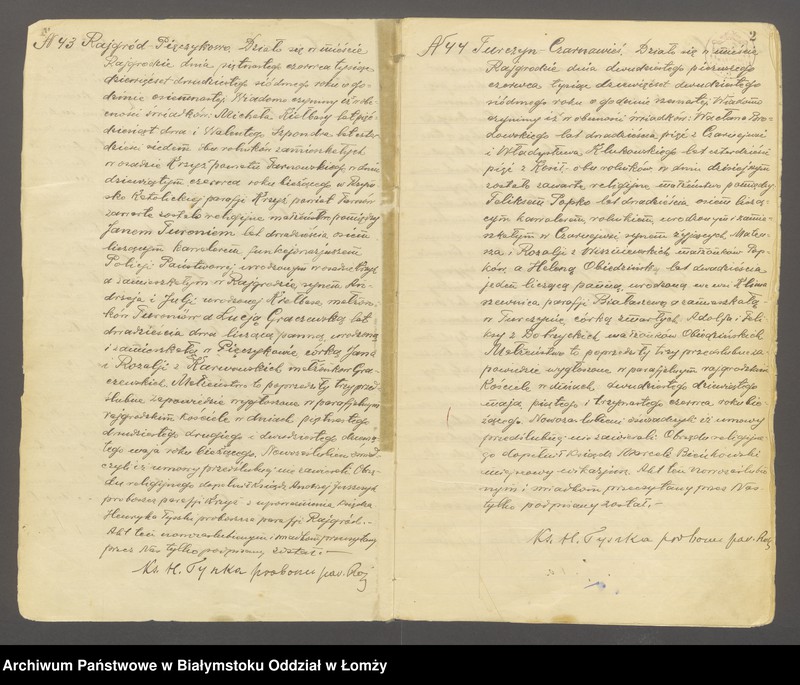 2
N 43 Rajgród-Pięczykowo. Działo się w mieście
Rajgrodzie dnia piętnastego czerwca tysiąc
dziewięćset dwudziestego siódmego roku o go-
dzinie osiemnastej. Wiadomo czynimy iż w obe-
cności świadków: Michała Kiełbasy lat pięć-
dziesiąt dwa i Walentego Szpondra lat czter-
dzieści siedem obu rolników zamieszkałych
w osadzie Krzyż powiatu Tarnowskiego w dniu
dziewiątym czerwca roku bieżącego w Rzym-
sko Katolickiej parafji Krzyż powiat Tarnów
zawarte zostało religijne małżeństwo pomiędzy
Janem Turoniem lat dwadzieścia osiem
liczącym kawalerem, funkcjonarjuszem
Policji Państwowej urodzonym w osadzie Krzyż
a zamieszkałym w Rajgrodzie, synem An-
drzeja i Julji urodzonej Kiełbasa małżon-
ków Turoniów a Lucją Graczewską lat
dwadzieścia dwa liczącą panną, urodzoną
i zamieszkałą w Pięczykowie, córką Jana
i Rozalji z Karwowskich małżonków Gra-
czewskich. Małżeństwo to poprzedziły trzy przed-
ślubne zapowiedzie wygłoszone w parafjalnym
rajgrodzkim kościele w dniach piętnastego
dwudziestego drugiego i dwudziestego dziewią-
tego maja roku bieżącego. Nowozaślubieni oświad-
czyli iż umowy przedślubnej nie zawierali. Obrzę-
du religijnego dopełnił Ksiądz Andrzej
proboszcz parafji Krzyż z upoważnienia Księdza
Henryka Tyszki proboszcza parafji Rajgród.-
Akt ten nowozaślubionym i świadkom przeczytany
przez Nas tylko podpisany został.-
Ks. H. Tyszka proboszcz par. Raj
2
N 44 Turczyn-Czarnawieś. Działo się w mieście
Rajgrodzie dnia dwudziestego pierwszego
czerwca tysiąc dziewięćset dwudziestego
siódmego roku o godzinie szesnastej. Wiadomo
czynimy iż w obecności świadków: Wacława Bro-
dowskiego lat dwadzieścia pięć z Czarnejwsi
i Władysława Klukowskiego lat czterdzieści
pięć z Kosił- obu rolników w dniu dzisiejszym
zostało zawarte religijne małżeństwo pomiędzy
Feliksem Topko lat dwadzieścia osiem liczą-
cym kawalerem, rolnikiem, urodzonym i zamie-
szkałym w Czarnejwsi synem żyjących Mateu-
sza i Rozalji z Wiszniewskich małżonków Top-
ków, a Heleną Obiedzińską, lat dwadzieścia
jeden liczącą panną, urodzoną we wsi Klima-
szewnica parafji Białaszewo, a zamieszkałą
w Turczynie, córką zmarłych Adolfa i Feli-
ksy z Dobrzyckich małżonków Obiedzińskich
Małżeństwo to poprzedziły trzy przedślubne za-
powiedzie wygłoszone w parafjalnym rajgrodzkim
Kościele w dniach, dwudziestego dziewiątego
maja, piątego i trzynastego czerwca roku bie-
żącego. Nowozaślubieni oświadczyli iż umowy
przedślubnej nie zawierali. Obrzędu religijne-
go dopełnił Ksiądz Marceli Bieńkowski
miejscowy wikarjusz. Akt ten nowozaślubio-
nym i świadkom przeczytany przez Nas
tylko podpisany został.-
Ks. H. Tyszka proboszcz par. Raj
Archiwum Państwowe w Białymstoku Oddział w Łomży